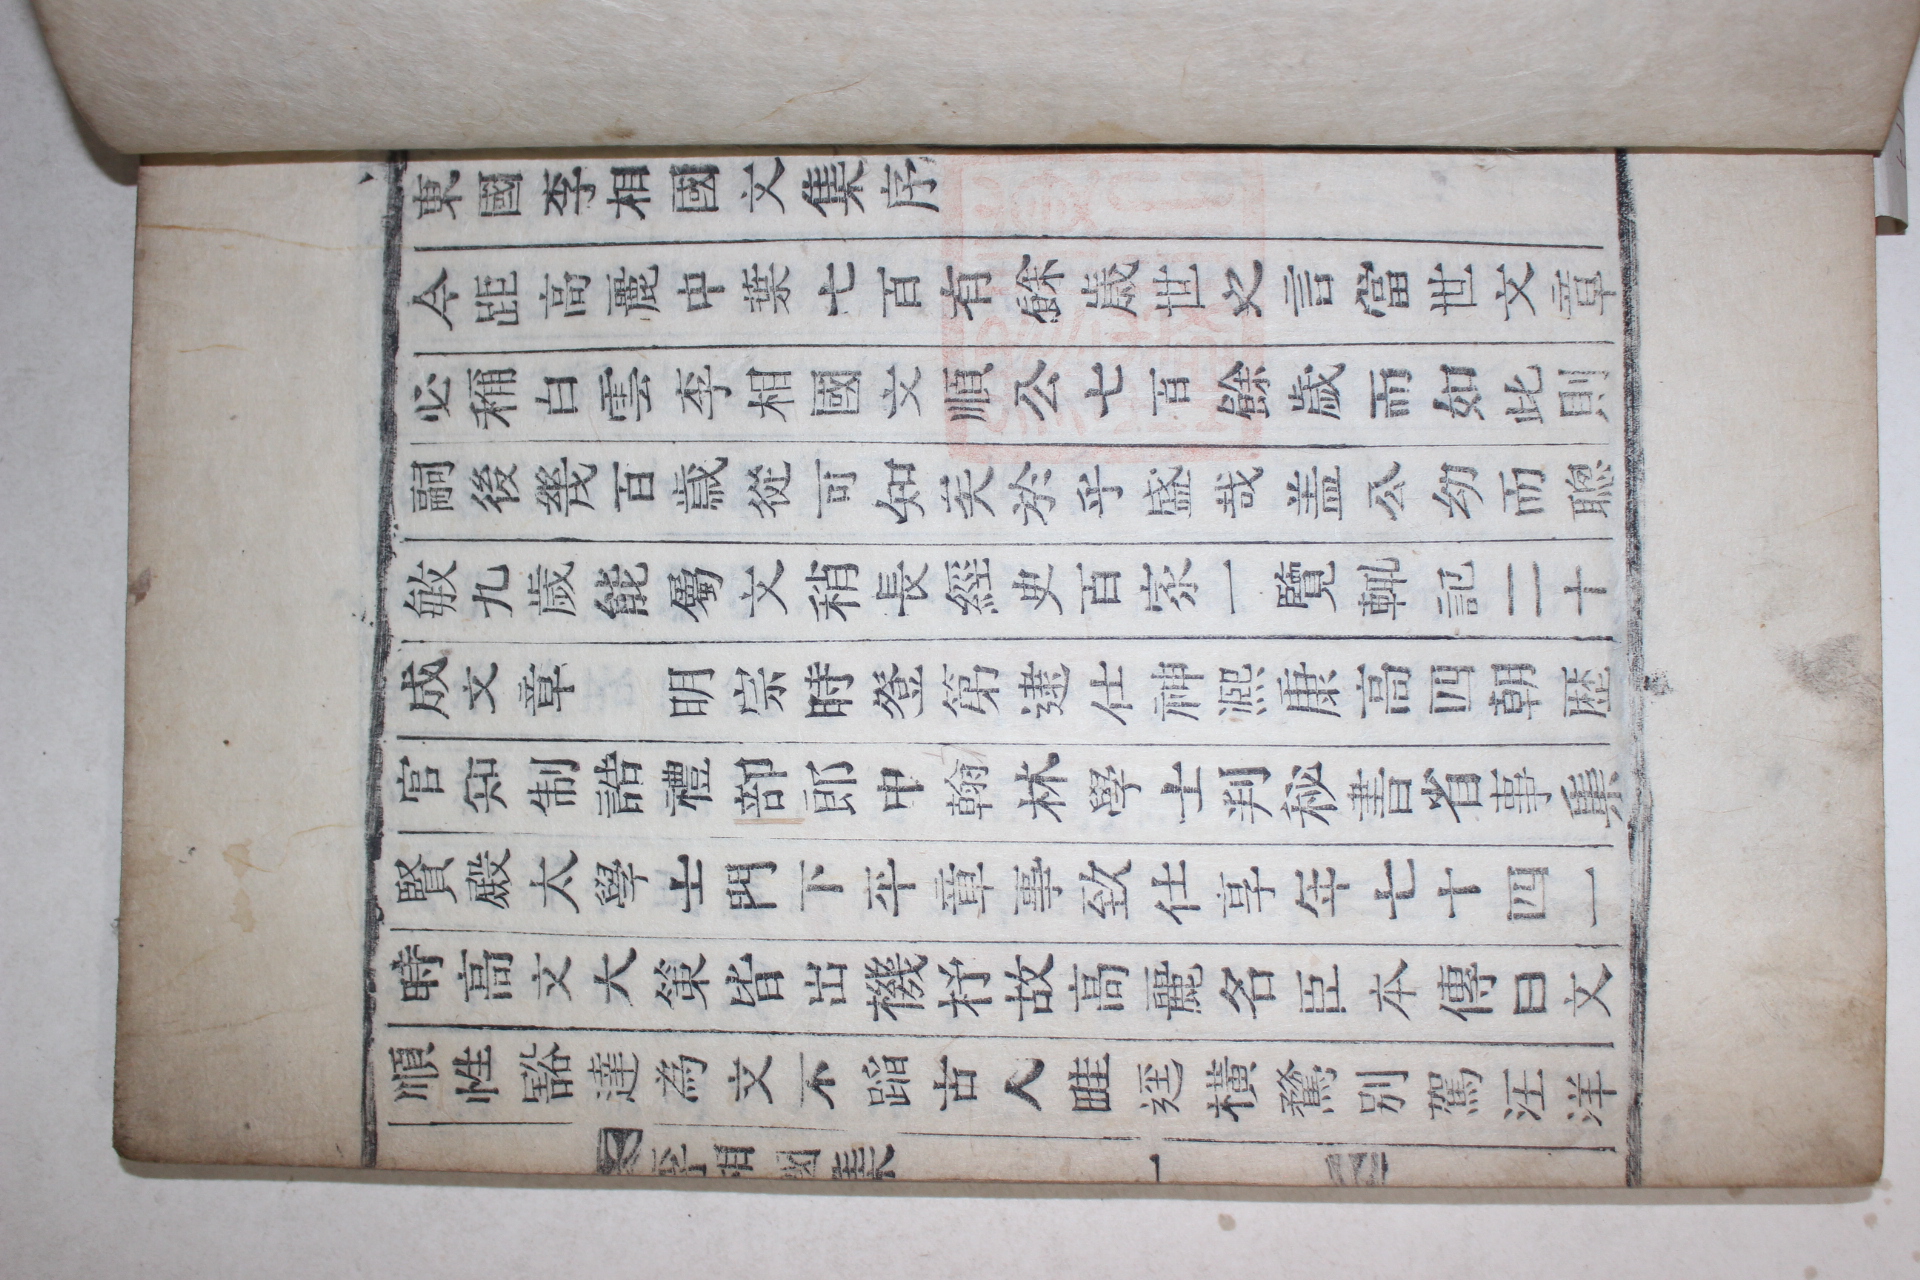 東國李相國文集序
今距高麗中葉七百有餘歲世之言當世文章
必稱白雲李相國文順公七百餘歲而如此則
嗣後幾百歲從可知矣於乎盛哉盖公幼而聰
敏九歲能屬文稍長經史百家一覽輒記二十
成文章　明宗時登第逮仕神熙康高四朝歷
官知制誥禮部郎中翰林學士判秘書省事集
賢殿太學士門下平章事致仕享年七十四一
時高文大策皆出機杼故高麗名臣本傳曰文
順性豁達為文不蹈古人畦逕橫騖別駕汪洋
李相國集
一